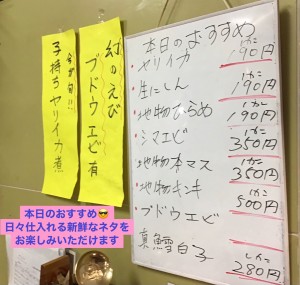 幻のえび
ブドウエビ有
今が旬!!
子持ちヤリイカ煮
本日のおすすめ
ヤリイカ 1カン 190円
・生にしん 1カン 190円
・地物ひらめ 1カン 190円
・シマエビ 1カン 350円
・地物本マス 1カン 350円
・地物キンキ 1カン 500円
・ブドウエビ
真鱈白子 1カン 280円
本日のおすすめ😎
日々仕入れる新鮮なネタを
お楽しみいただけます